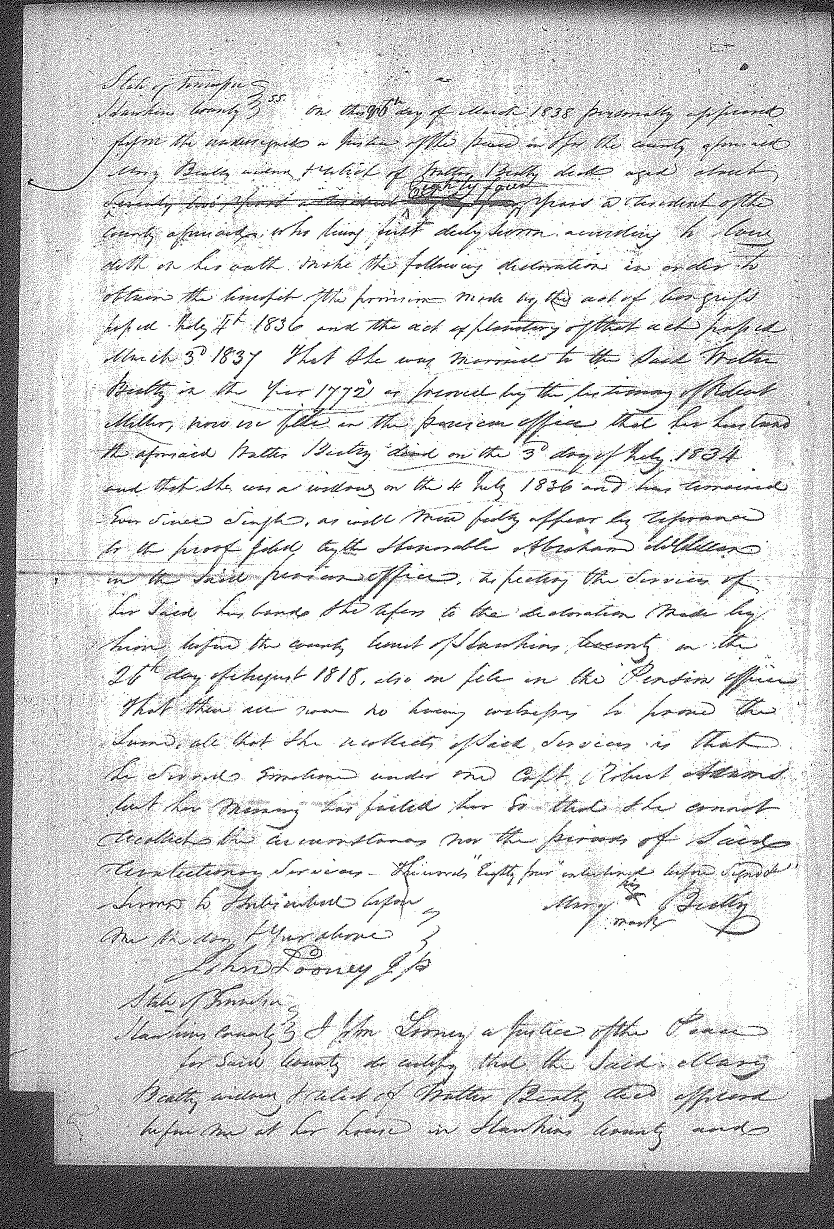 State of Tennessee
Hawkins County } SS On this 26th day of March 1838 personally appeared
before the undersigned a Justice of the peace in & for the county aforesaid
Mary Beaty widow & relict of Walter Beaty decd aged about
eighty four
years a resident of the
County aforesaid, who being first duly sworn according to law
doth on her oath make the following declaration in order to
obtain the benefit of the provision made by the act of Congress
passed July 4th 1836 and the act explanatory of that act passed
March 3d 1837 That She was married to the Said Walter
Beatty in the year 1772 as proved by the testimony of Robert
Miller, now on file in the pension office that her husband
the aforesaid Walter Beaty died on the 3d day of July 1834
and that She was a widow on the 4 July 1836 and has remained
Ever Since Single, as will more fully appear by reference
to the proof filed by the Honorable Abraham McClellan
in the Said pension office, respecting the Services of
her Said husband She refers to the declaration made by
him before the county Court of Hawkins County on the
26th day of August 1818, also on file in the Pension office
That there are now no living witnesses to prove the
Same, all that She recollects of Said Services is that
he Served Sometime under one Capt Robert Adams
but her memory has failed her So that She cannot
recollect the circumstances nor the periods of Said
Revolutionary Services - The words "Eighty four" interlined before Signed
Sworn to & Subscribed before } Mary her X mark Beatty
me the day & year above }
John Looney J P
State of Tennessee
Hawkins County } I John Looney a Justice of the Peace
for Said County do certify that the Said Mary
Beatty widow & relict of Walter Beatty decd appeared
before me at her house in Hawkins County and